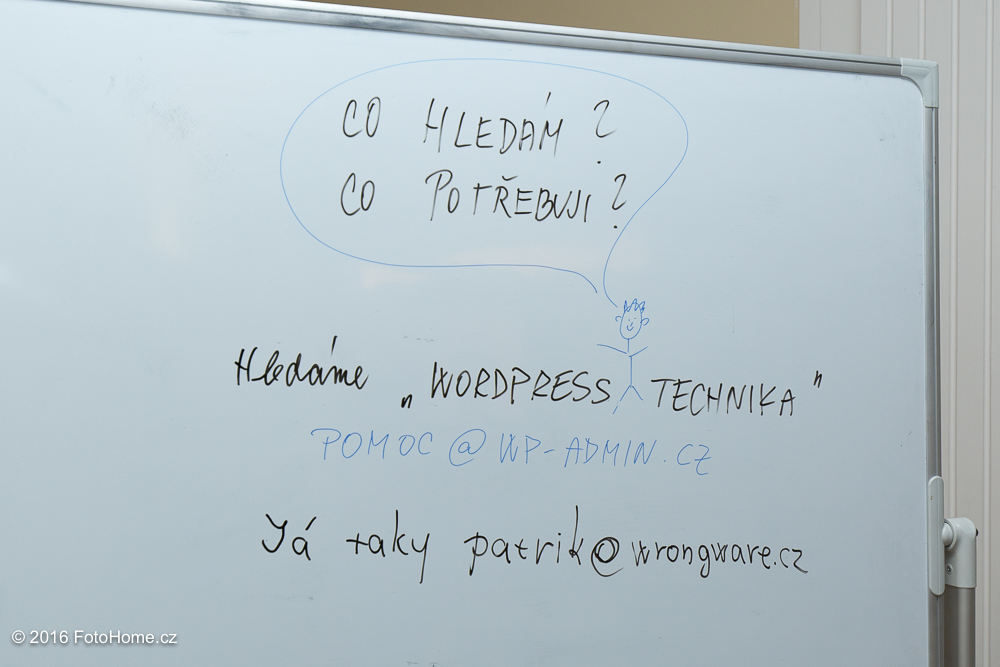 CO HLEDÁM?
CO POTŘEBUJI?
Hledáme „WORDPRESS TECHNIKA"
POMOC@WP-ADMIN.CZ
Já taky patrik@wrongware.cz
© 2016 FotoHome.cz